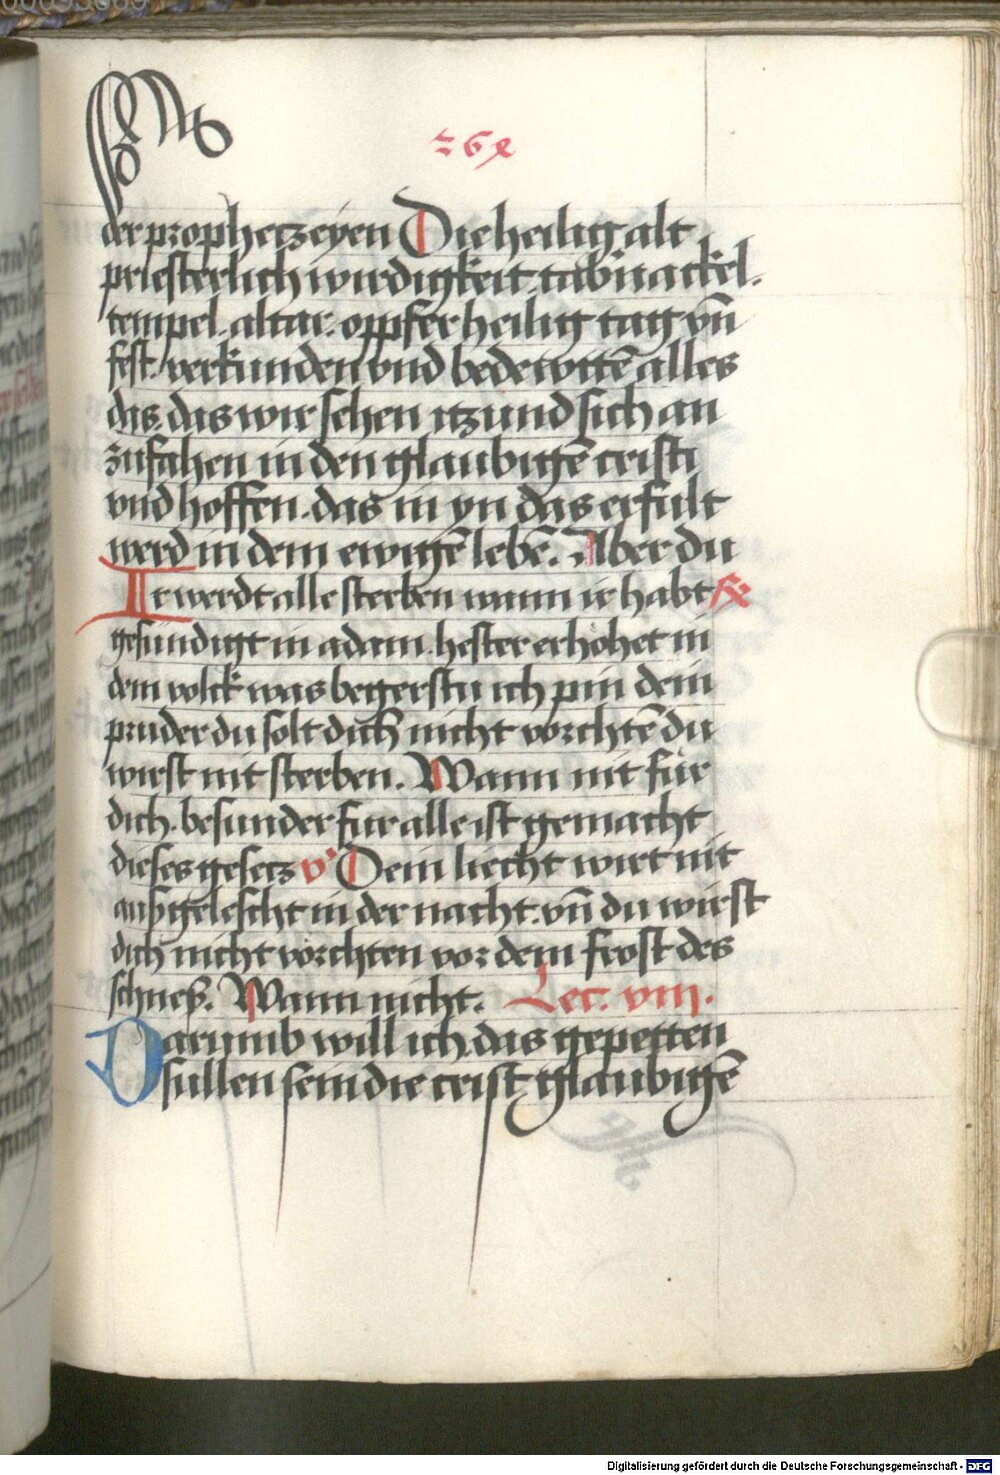 der prophetzeyen Die heilig alt
priesterlich wirdigkeit. tab'nackel.
tempel. altar. oppfer heilig tag vn̄
fest. verkunden vnd bedewttē alles
das. das wir sehen itzund sich an
zufahen in den glaubigē cristi
vnd hoffen. das in yn das erfult
werd in dem ewigē lebē. Aber du
Ir werdt alle sterben wann ir habt
gesundigt in adam. hester erhöhet in
dem volck was begerstu ich pin dein
pruder du solt dich nicht vorchtē du
wirst nit sterben. Wann nit für
dich. besunder fur alle ist gemacht
dieses gesetz v' Dein liecht wirt nit
außgelescht in der nacht. vn̄ du wirst
dich nicht vörchten vor dem frost des
schneß. Wann nicht. Lec. viii.
Darumb will ich das gepetten
sullen sein die crist glaubigē
Digitalisierung gefördert durch die Deutsche Forschungsgemeinschaft - DFG